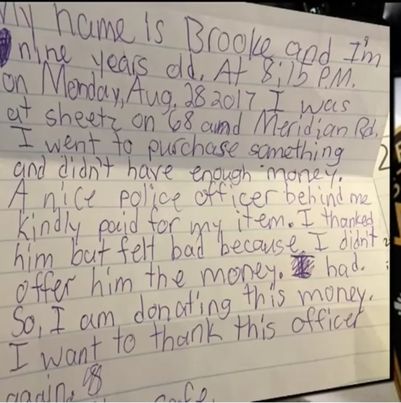 My name is Brooke and I'm
nine years old. At 8:15 P.M.
on Monday, Aug. 28 2017 I was
at sheetz on 68 and Meridian Rd.
I went to purchase something
and didn't have enough money.
A nice police officer behind me
kindly paid for my item. I thanked
him but felt bad because I didn't
offer him the money. I had.
So, I am donating this money.
I want to thank this officer
again.
safe